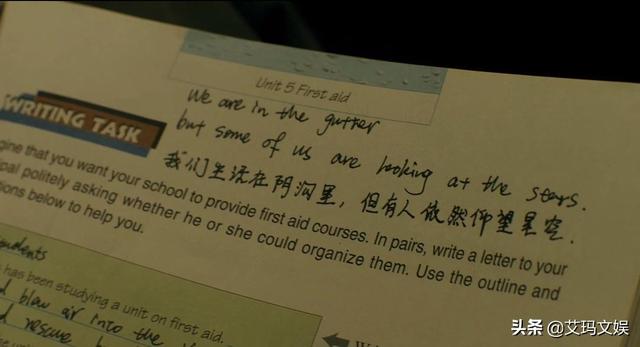 Unit 5 First aid
We are in the gutter
but some of us are looking at the stars.
我们生活在阴沟里，但有人依然仰望星空.
WRITING TASK
gine that you want your school to provide first aid courses. In pairs, write a letter to your
pal politely asking whether he or she could organize them. Use the outline and
tions below to help you.
udents
has been studying a unit on first aid.
blow air into the
rescue
头条 @艾玛文娱